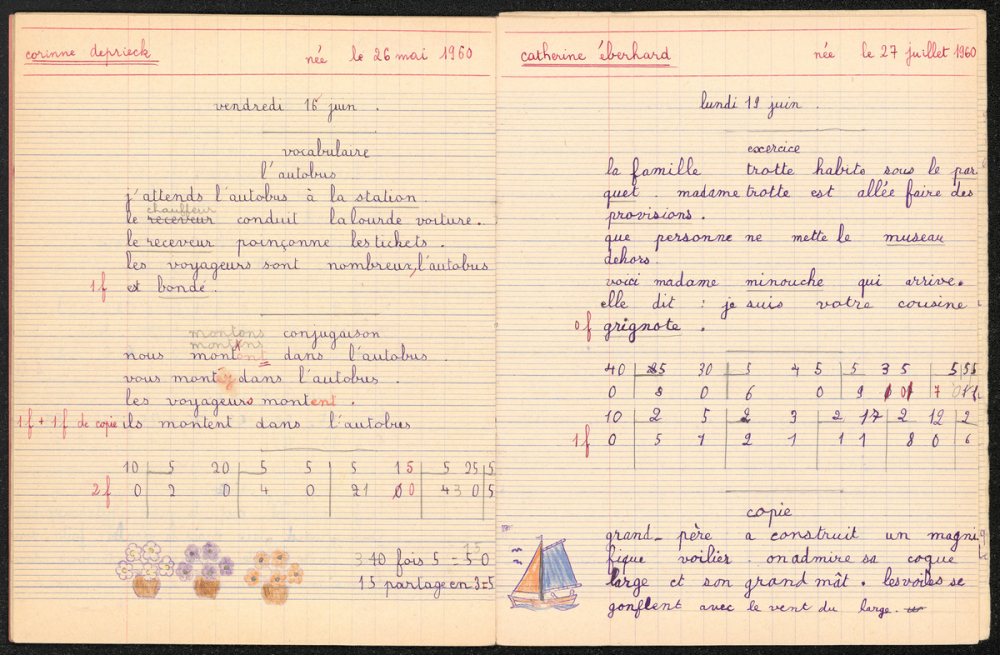 corinne deprieck née le 26 mai 1960
vendredi 16 juin.
vocabulaire
l'autobus
j'attends l'autobus à la station.
chauffeur
le receveur conduit la lourde voiture.
le receveur poinçonne les tickets.
les voyageurs sont nombreux, l'autobus
1f est bondé.
montons conjugaison
montons
nous montont dans l'autobus.
vous montez dans l'autobus.
les voyageurs montent.
1f + 1f de copie ils montent dans l'autobus
10 5 20 5 5 5 15 5 25 5
2f 0 2 0 4 0 21 00 43 0 5
15
3 10 fois 5 = 50
15 partage en 3 = 5
catherine éberhard née le 27 juillet 1960
lundi 19 juin.
exercice
la famille trotte habite sous le par
quet. madame trotte est allée faire des
provisions.
que personne ne mette le museau
dehors.
voici madame minouche qui arrive.
elle dit : je suis votre cousine
0f grignote.
40 5 30 5 45 5 35 5 55
0 8 0 6 0 9 0 7
10 2 5 2 3 2 17 2 12 2
1f 0 5 1 2 1 1 1 8 0 6
copie
grand-père a construit un magni
fique voilier. on admire sa coque
large et son grand mât. les voiles se
gonflent avec le vent du large.